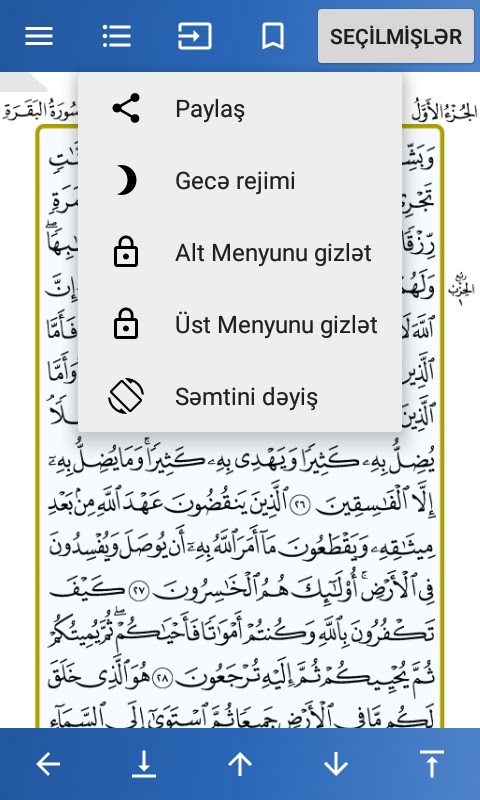 SEÇİLMİŞLƏR
سُورَةُ البَقَرَةِ
الجُزْءُ الأَوَّلُ
Paylaş
Gecə rejimi
Alt Menyunu gizlət
Üst Menyunu gizlət
Səmtini dəyiş
وَبَشِّ
تَجْرِي
رِّزْقًا
وَلَهُمْ
إِنَّ
ربع
الحزب
١
ٱللَّهَ لَا
فَأَمَّا
ٱلَّذِينَ
وَأَمَّا
ٱلَّذِينَ
يُضِلُّ بِهِۦ كَثِيرًا وَيَهْدِي بِهِۦ كَثِيرًا ۚ وَمَا يُضِلُّ بِهِۦٓ
إِلَّا ٱلْفَـٰسِقِينَ ٢٦ ٱلَّذِينَ يَنقُضُونَ عَهْدَ ٱللَّهِ مِنۢ بَعْدِ
مِيثَـٰقِهِۦ وَيَقْطَعُونَ مَآ أَمَرَ ٱللَّهُ بِهِۦٓ أَن يُوصَلَ وَيُفْسِدُونَ
فِي ٱلْأَرْضِ ۚ أُو۟لَـٰٓئِكَ هُمُ ٱلْخَـٰسِرُونَ ٢٧ كَيْفَ
تَكْفُرُونَ بِٱللَّهِ وَكُنتُمْ أَمْوَٰتًا فَأَحْيَـٰكُمْ ۖ ثُمَّ يُمِيتُكُمْ
ثُمَّ يُحْيِيكُمْ ثُمَّ إِلَيْهِ تُرْجَعُونَ ٢٨ هُوَ ٱلَّذِي خَلَقَ
لَكُم مَّا فِي ٱلْأَرْضِ جَمِيعًا ثُمَّ ٱسْتَوَىٰٓ إِلَى ٱلسَّمَآءِ